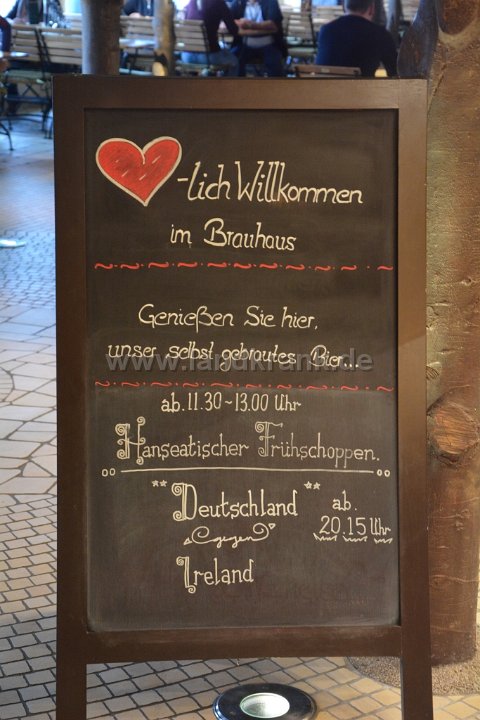 -lich Willkommen
im Brauhaus
Genießen Sie hier,
unser selbst gebrautes Bier...
www.landkramt.de
ab 11.30~13.00 Uhr
Hanseatischer Frühschoppen.
Deutschland
ab.
20.15 Uhr
gegen
Ireland